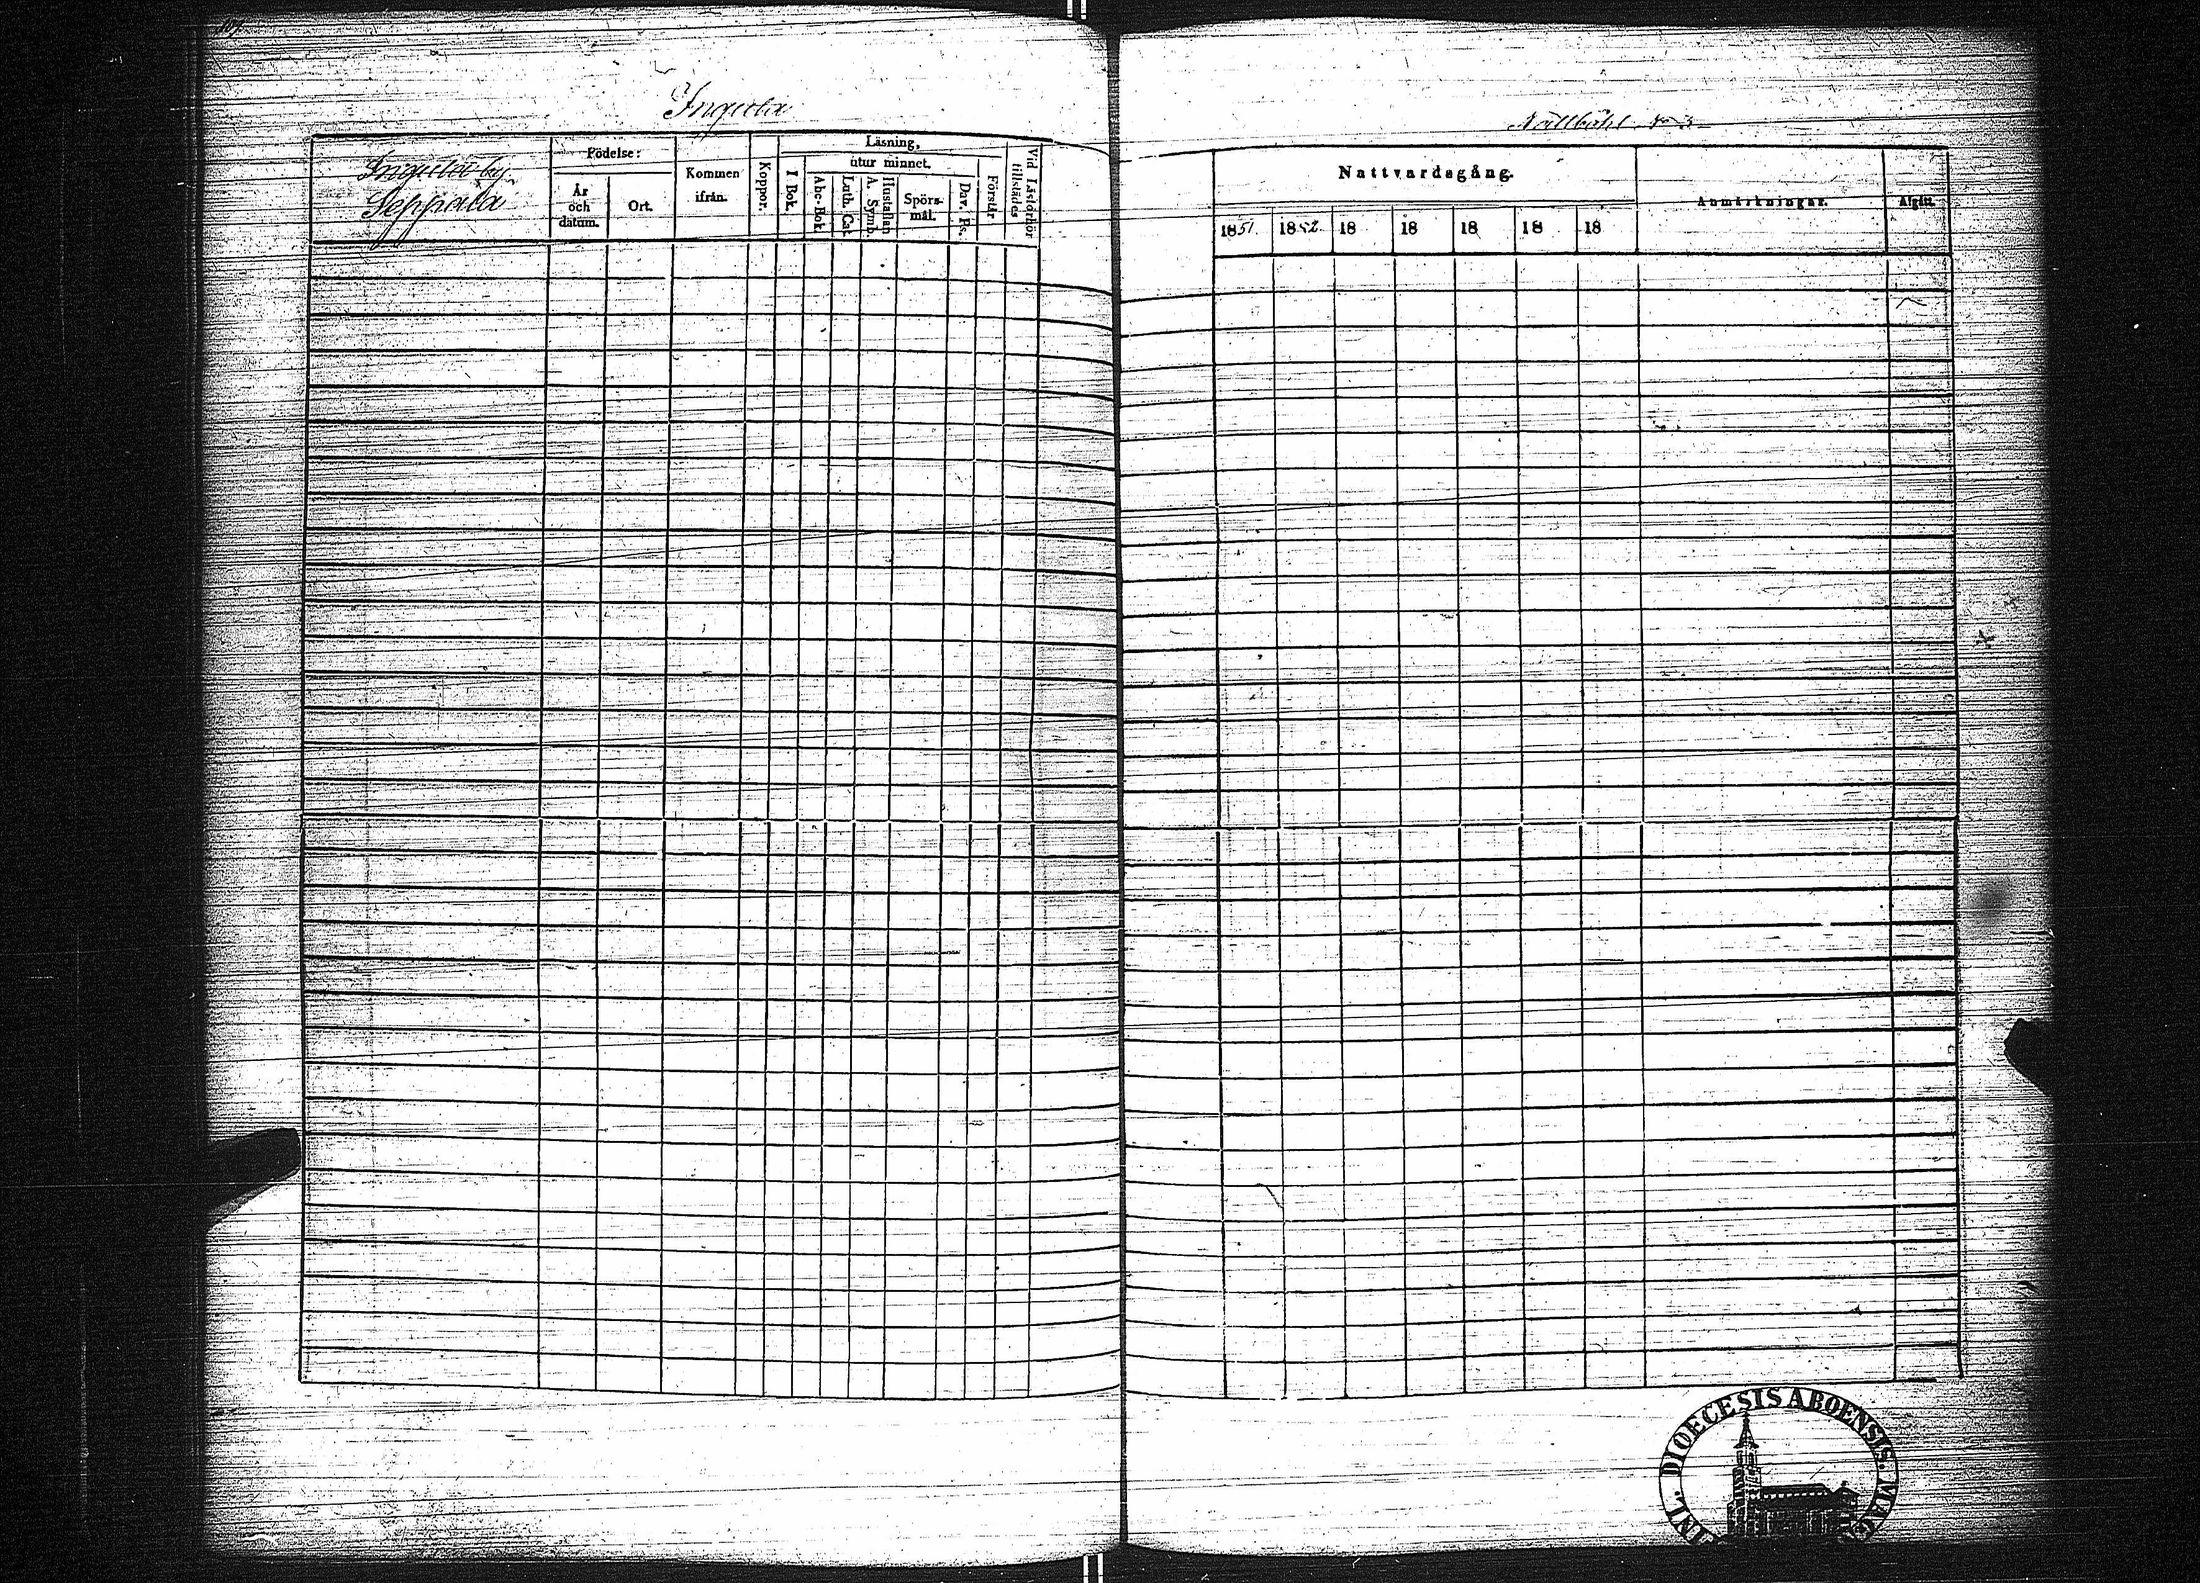 Ingeris
Ingeris by.
Seppälä
Födelse:
År
och
datum.
Ort.
Kommen
ifrån.
Koppor.
Läsning,
I Bok.
utur minnet.
Abc-Bok.
Luth. Cat.
A. Symb.
Hustaflan
Spörs-
mål.
Dav. Ps.
Förstår
Vid Läsförhör
tillstädes
Nattvardsgång.
1851
1852
18
18
18
18
18
Anmärkningar.
Afgått.
DIOECESIS ABOENSIS.